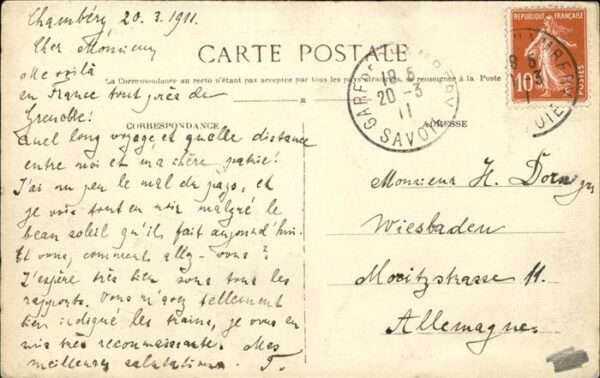 Chambéry 20.3.1911.
Cher Monsieur
Me voilà
en France tout près de
Grenoble!
Quel long voyage, et quelle distance
entre moi et ma chère patrie!
J'ai un peu le mal du pays, et
je vois tout en noir malgré le
beau soleil qu'il fait aujourd'hui.
Et vous, comment allez-vous?
J'espère très bien sous tous les
rapports. Vous m'avez tellement
bien indiqué les trains, je vous en
suis très reconnaissante. Mes
meilleures salutations. F.
CARTE POSTALE
La Correspondance au recto n'est pas acceptée par tous les pays étrangers se renseigner à la Poste
CORRESPONDANCE
ADRESSE
GARE CHAMBERY
18 5
20 - 3
11
SAVOIE
RÉPUBLIQUE FRANÇAISE
10
POSTES
Monsieur H.
Wiesbaden
Moritzstrasse 11.
Allemagne